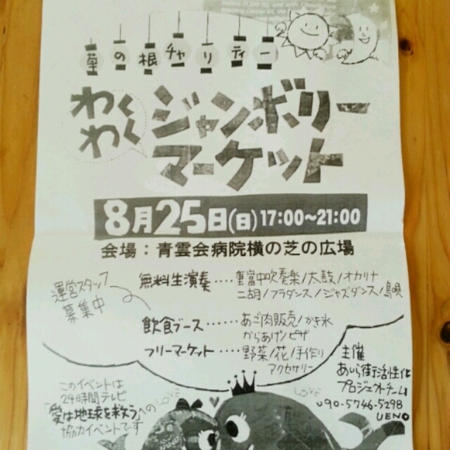 草の根チャリティー
わくわく
ジャンボリー
マーケット
8月25日(日)17:00～21:00
会場：青雲会病院横の芝の広場
運営スタッフ
募集中
無料生演奏‥‥重富中吹奏楽/太鼓/オカリナ
二胡/フラダンス/ジャズダンス/島唄
飲食ブース‥‥あご肉販売/かき氷
からあげ/ピザ
フリーマーケット‥‥野菜/花/手作り
アクセサリー
主催
あいら街活性化
プロジェクトチーム
090-5746-5298
UENO
このイベントは
24時間テレビ
"愛は地球を救う"への
協力イベントです
LOVE
LOVE